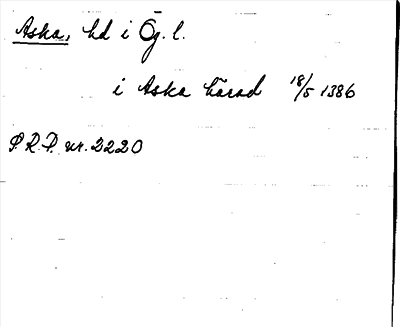 Aska, hd i Ög. l.
i Aska härad 18/5 1386
P.R.P. nr. 2220